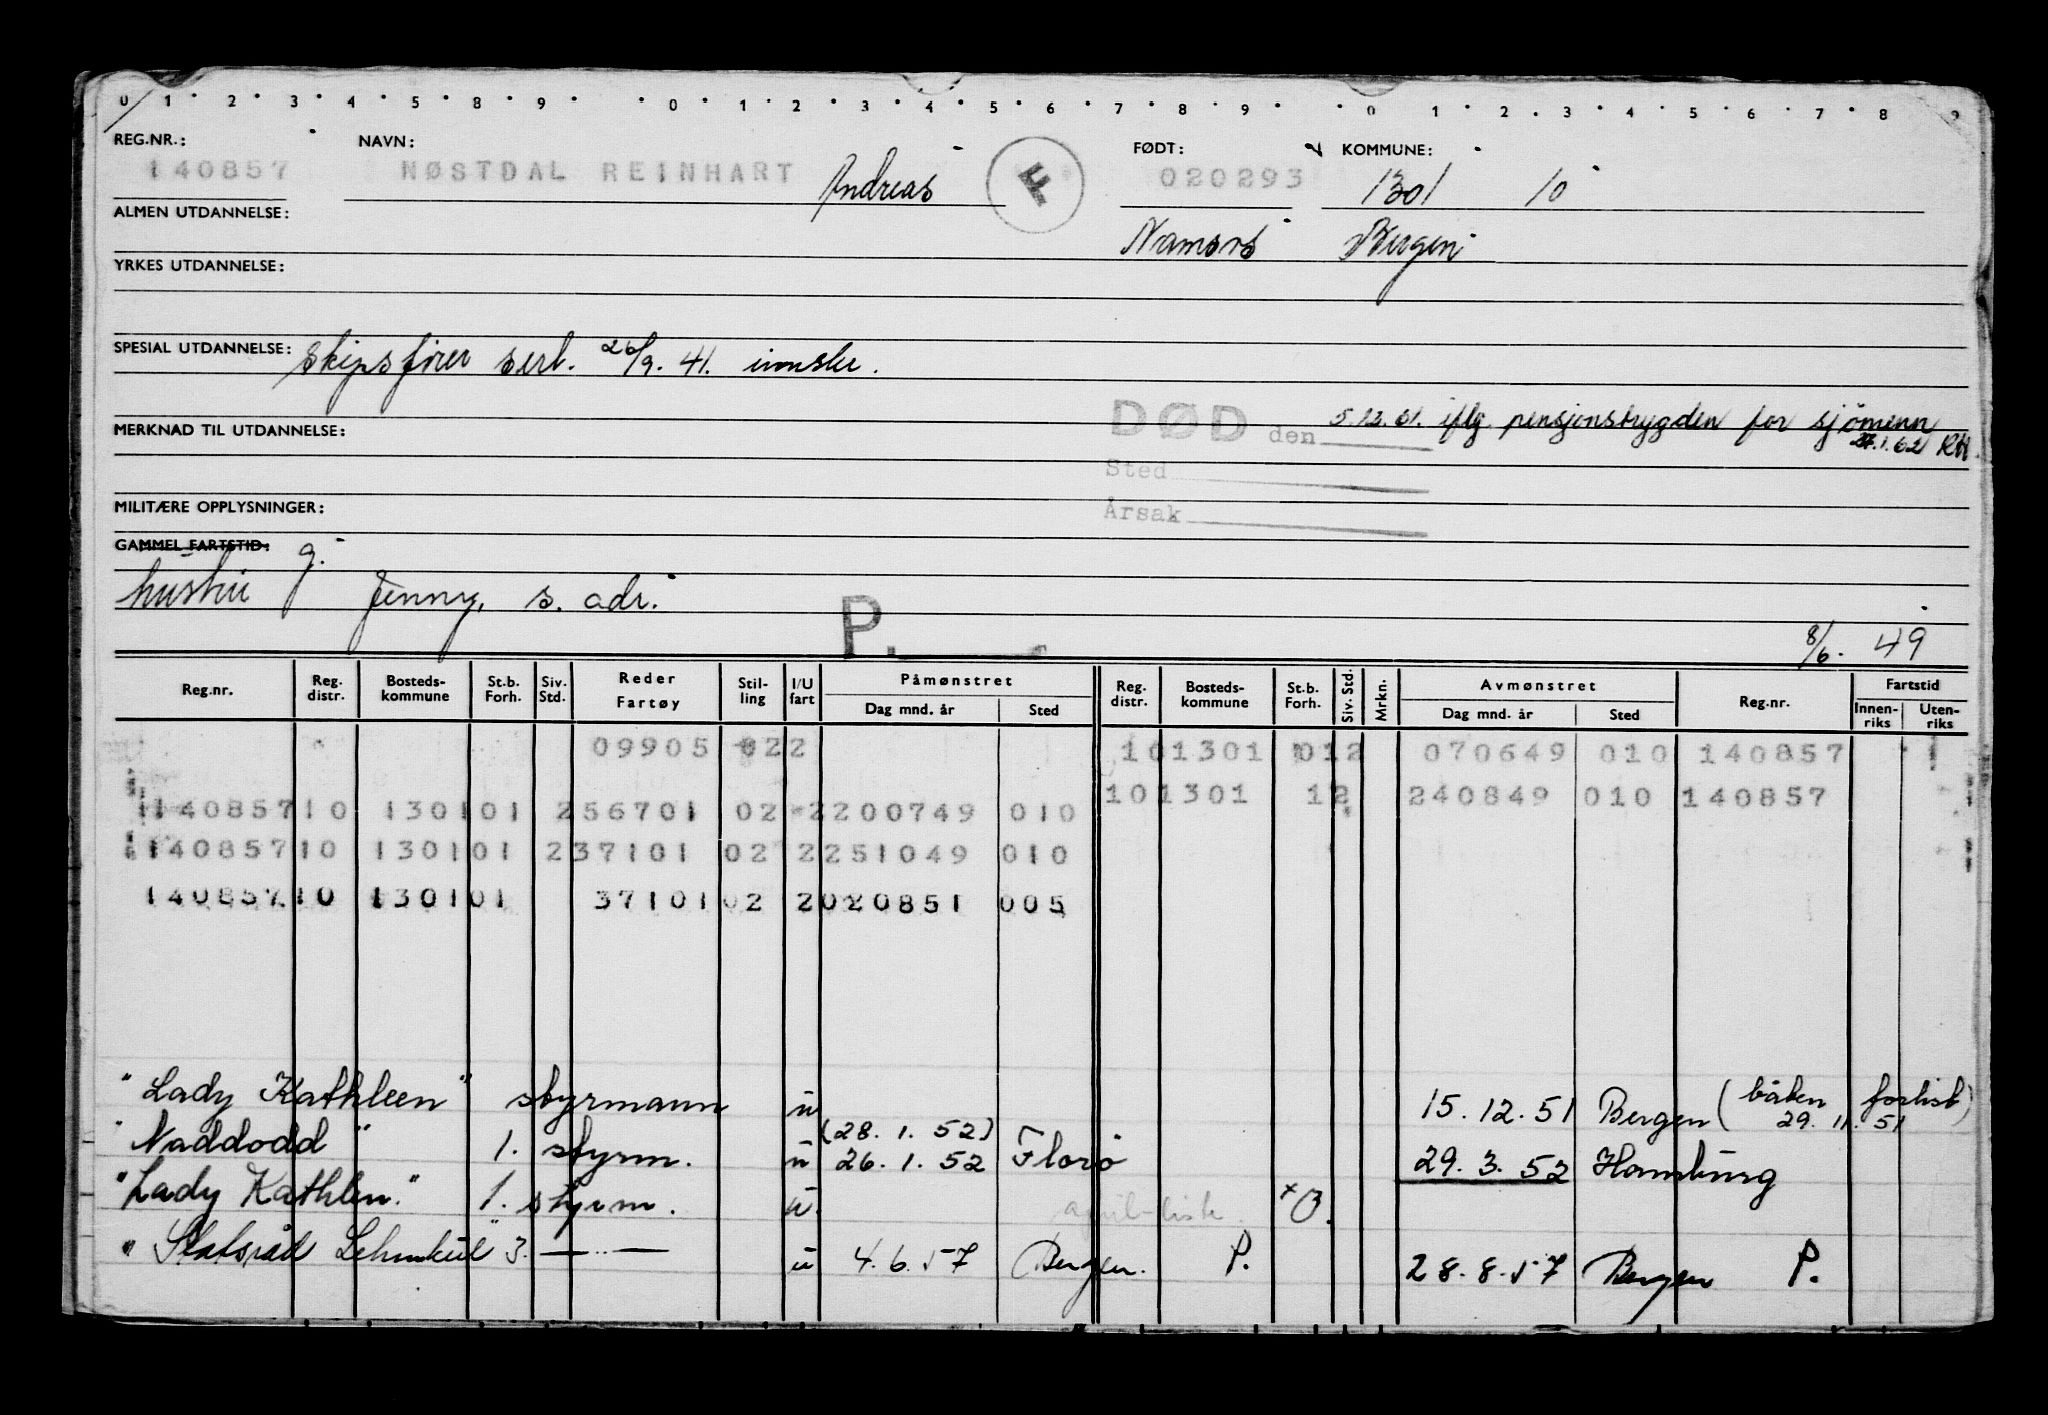 0 1 2 3 4 5 8 9 0 1 2 3 4 5 6 7 8 9 0 1 2 3 4 5 6 7 8 9
REG.NR.: NAVN: FØDT: KOMMUNE:
140857 NØSTDAL REINHART Andreas F 020293 1301 10
ALMEN UTDANNELSE: Namsos Bergen
YRKES UTDANNELSE:
SPESIAL UTDANNELSE: Skipsfører sert. 26/9. 41.
DØD den 5.12.61. iflg. pensjonstrygden for sjömenn
MERKNAD TIL UTDANNELSE: 27.1.62 RH.
Sted
MILITÆRE OPPLYSNINGER: Årsak
GAMMEL FARTSTID: g.
hustru Jenny, s. adr.
P. 8/6. 49
Reg.nr. Reg. distr. Bosteds- kommune St.b. Forh. Siv. Std. Reder Fartøy Stil- ling I/U fart Påmønstret Dag mnd. år Sted Reg. distr. Bosteds- kommune St.b. Forh. Siv. Std. Mrkn. Avmønstret Dag mnd. år Sted Reg.nr. Fartstid Innen- riks Uten- riks
09905 022 101301 012 070649 010 140857
140857 10 1301 01 2 56701 02 2 200749 010 101301 12 240849 010 140857
140857 10 1301 01 2 37101 02 2 251049 010
140857 10 1301 01 37101 02 2 020851 005
"Lady Kathleen" styrmann u 15.12.51 Bergen (båten forlist 29.11.51)
"Naddodd" 1. styrm. u (28.1.52) 26.1.52 Florø 29.3.52 Hamburg
"Lady Kathlen." 1. styrm. u. april-liste
"Statsråd Lehmkul" 3. — " — u 4.6.57 Bergen. P. 28.8.57 Bergen P.